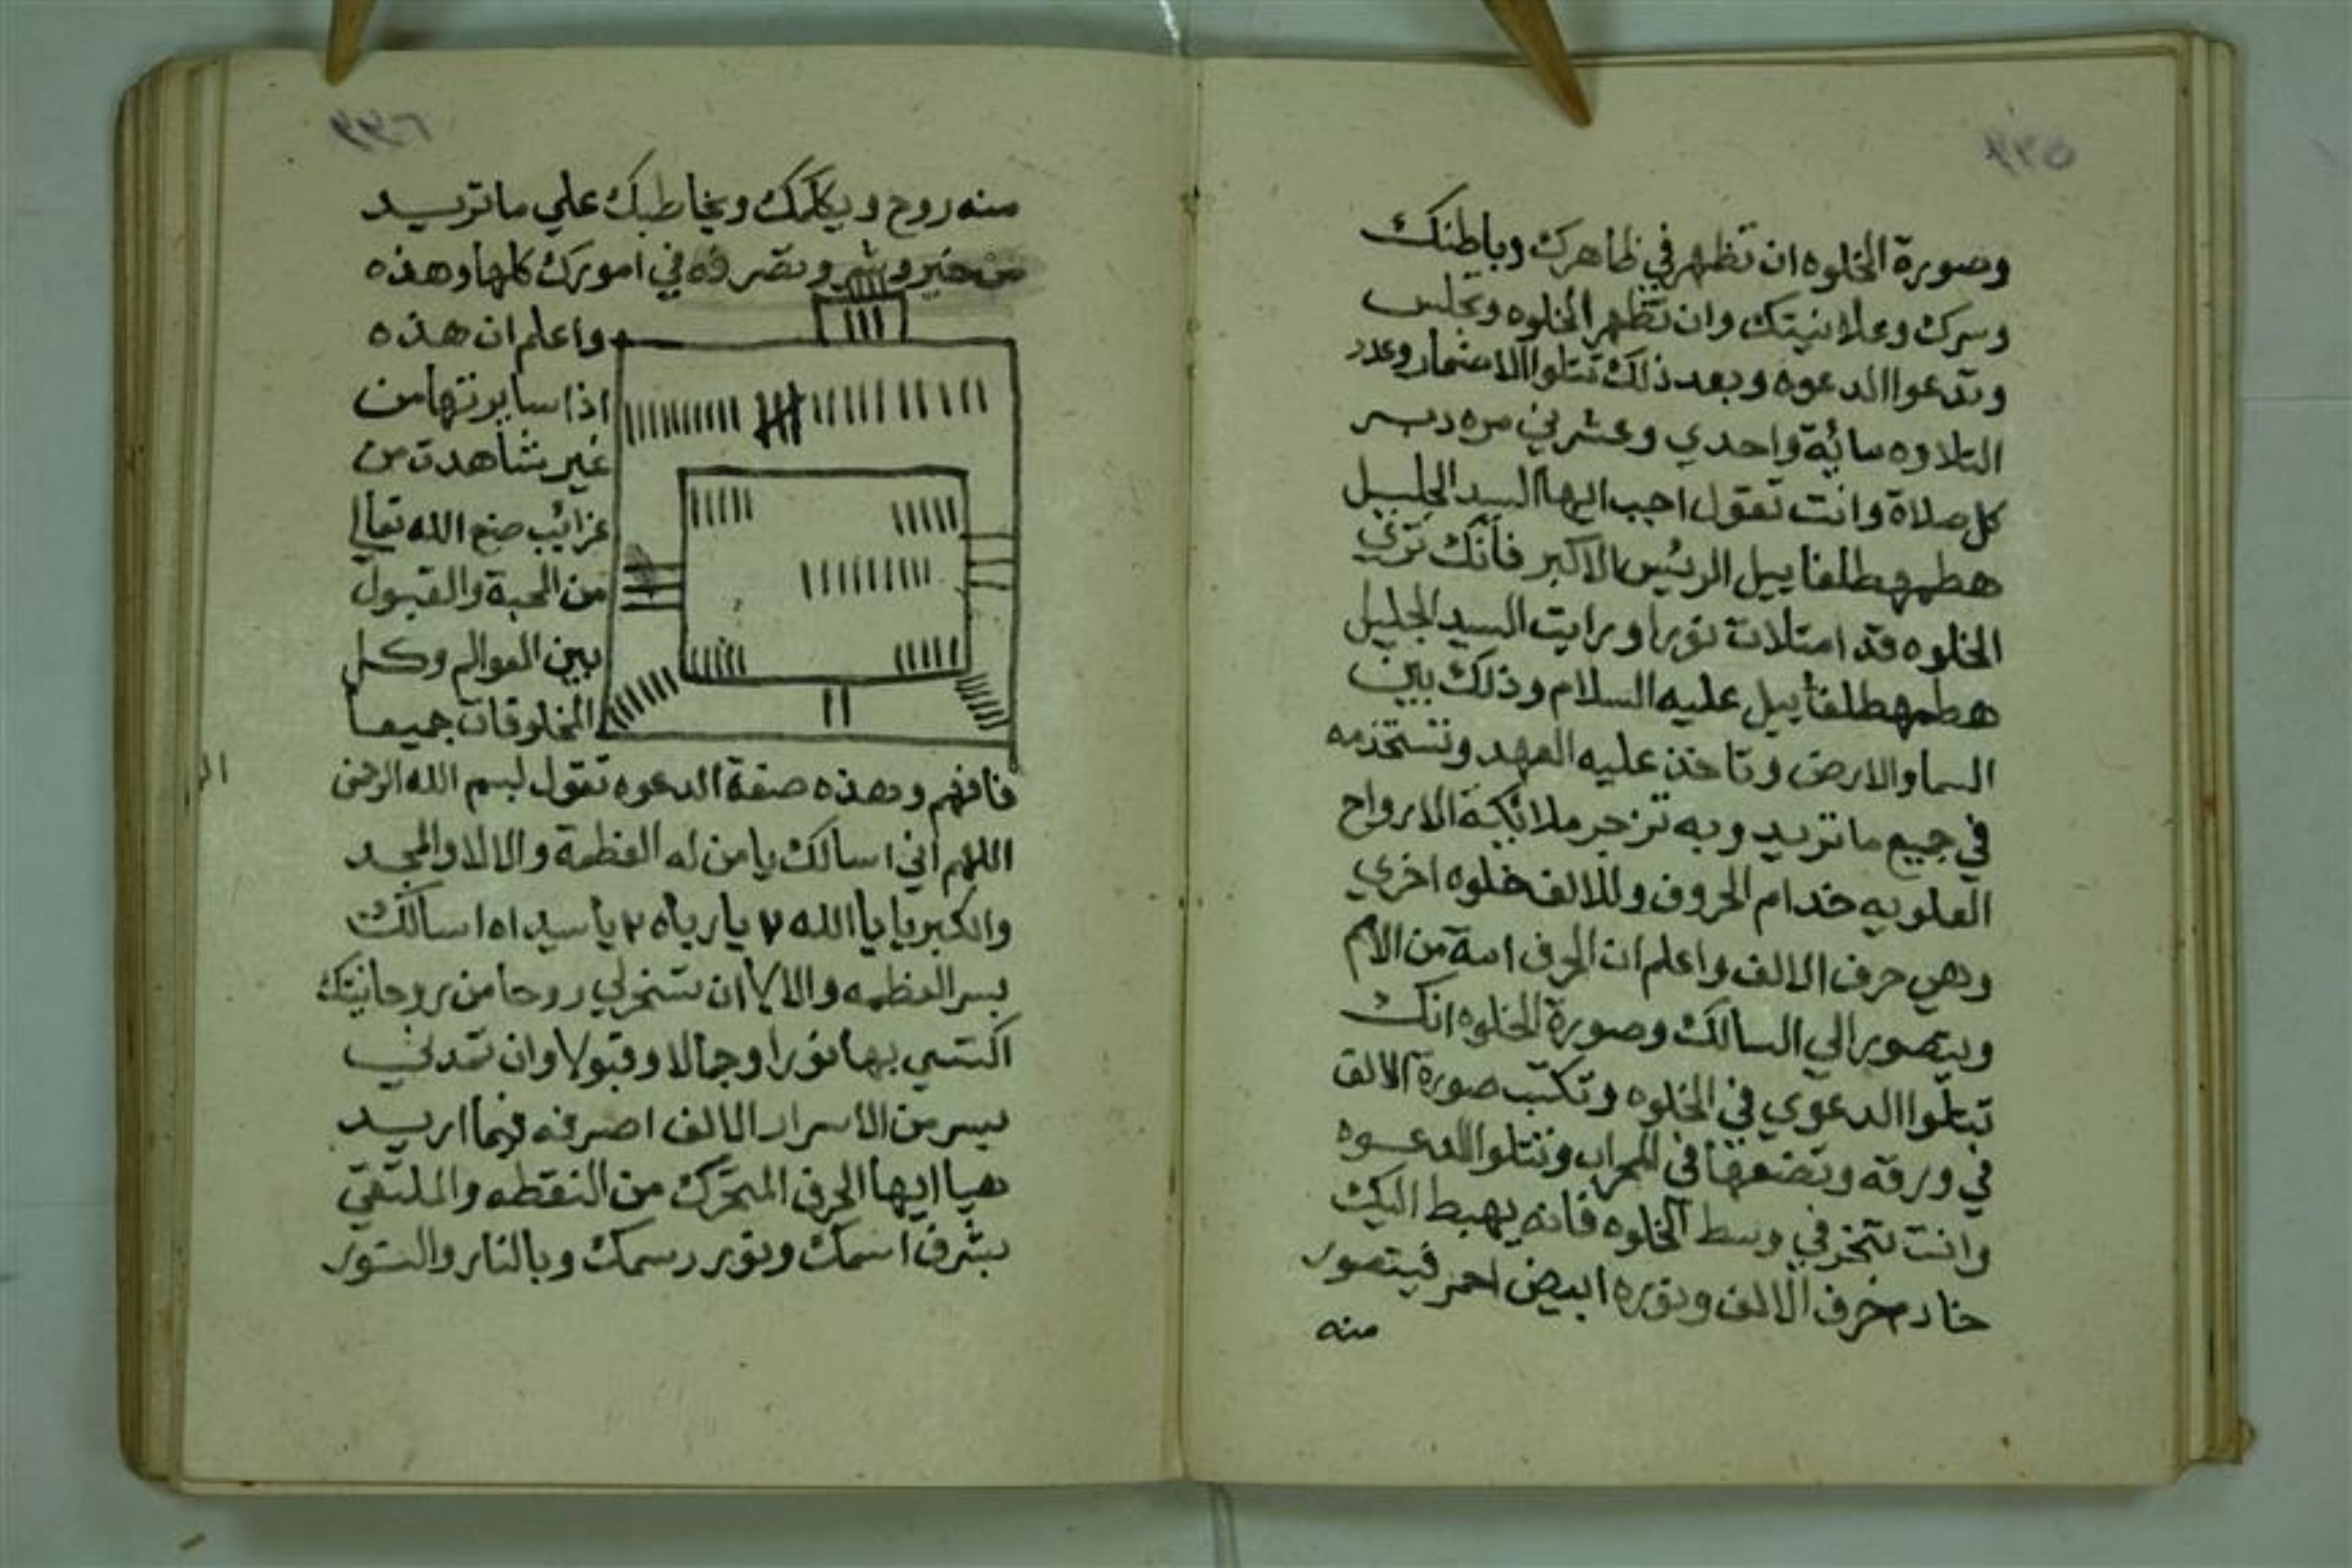 وصورة الخلوه ان تظهر في ظاهرك وباطنك
وسرك وعلانيتك وان تظهر الخلوه وتجلس
وتدعوا الدعوه وبعد ذلك تتلوا الاضمار وعدد
التلاوه مائة واحدي وعشرين مره دبر
كل صلاة وانت تقول اجب ايها السيد الجليل
هطمهطلفاييل الرئيس الاكبر فانك تري
الخلوه قد امتلات نورا ورايت السيد الجليل
هطمهطلفاييل عليه السلام وذلك بين
السما والارض وتاخذ عليه العهد وتستخدمه
في جميع ما تريد وبه تزجر ملائكة الارواح
العلويه خدام الحروف وللالف خلوه اخري
وهي حرف الالف واعلم ان الحرف امة من الامم
ويتصور الي السالك وصورة الخلوه انك
تتلوا الدعوي في الخلوه وتكتب صورة الالف
في ورقه وتضعها في المحراب وتتلوا الدعوه
وانت تبخر في وسط الخلوه فانه يهبط اليك
خادم حرف الالف ونوره ابيض احمر فيتصور
منه
٣٣٦
منه روح ويكلمك ويخاطبك علي ما تريد
من خير وشر وتصرفه في امورك كلها وهذه
واعلم ان هذه
اذا سايرتها من
غير شاهدت من
غرائب صنع الله تعالي
من المحبة والقبول
بين العوالم وكل
المخلوقات جميعا
فافهم وهذه صفة الدعوه تقول بسم الله الرحمن
اللهم اني اسالك يا من له العظمة والالا والمجد
والكبريا يا الله ٧ يا رباه ٢ يا سيداه اسالك
بسر العظمه والالا ان تسخر لي روحا من روحانيتك
اكتسي بها نورا وجمالا وقبولا وان تمدني
بسر من الاسرار الالف اصرفه فيما اريد
هيا ايها الحرف المتحرك من النقطه والملتقي
بشرف اسمك ونور رسمك وبالنار والنور